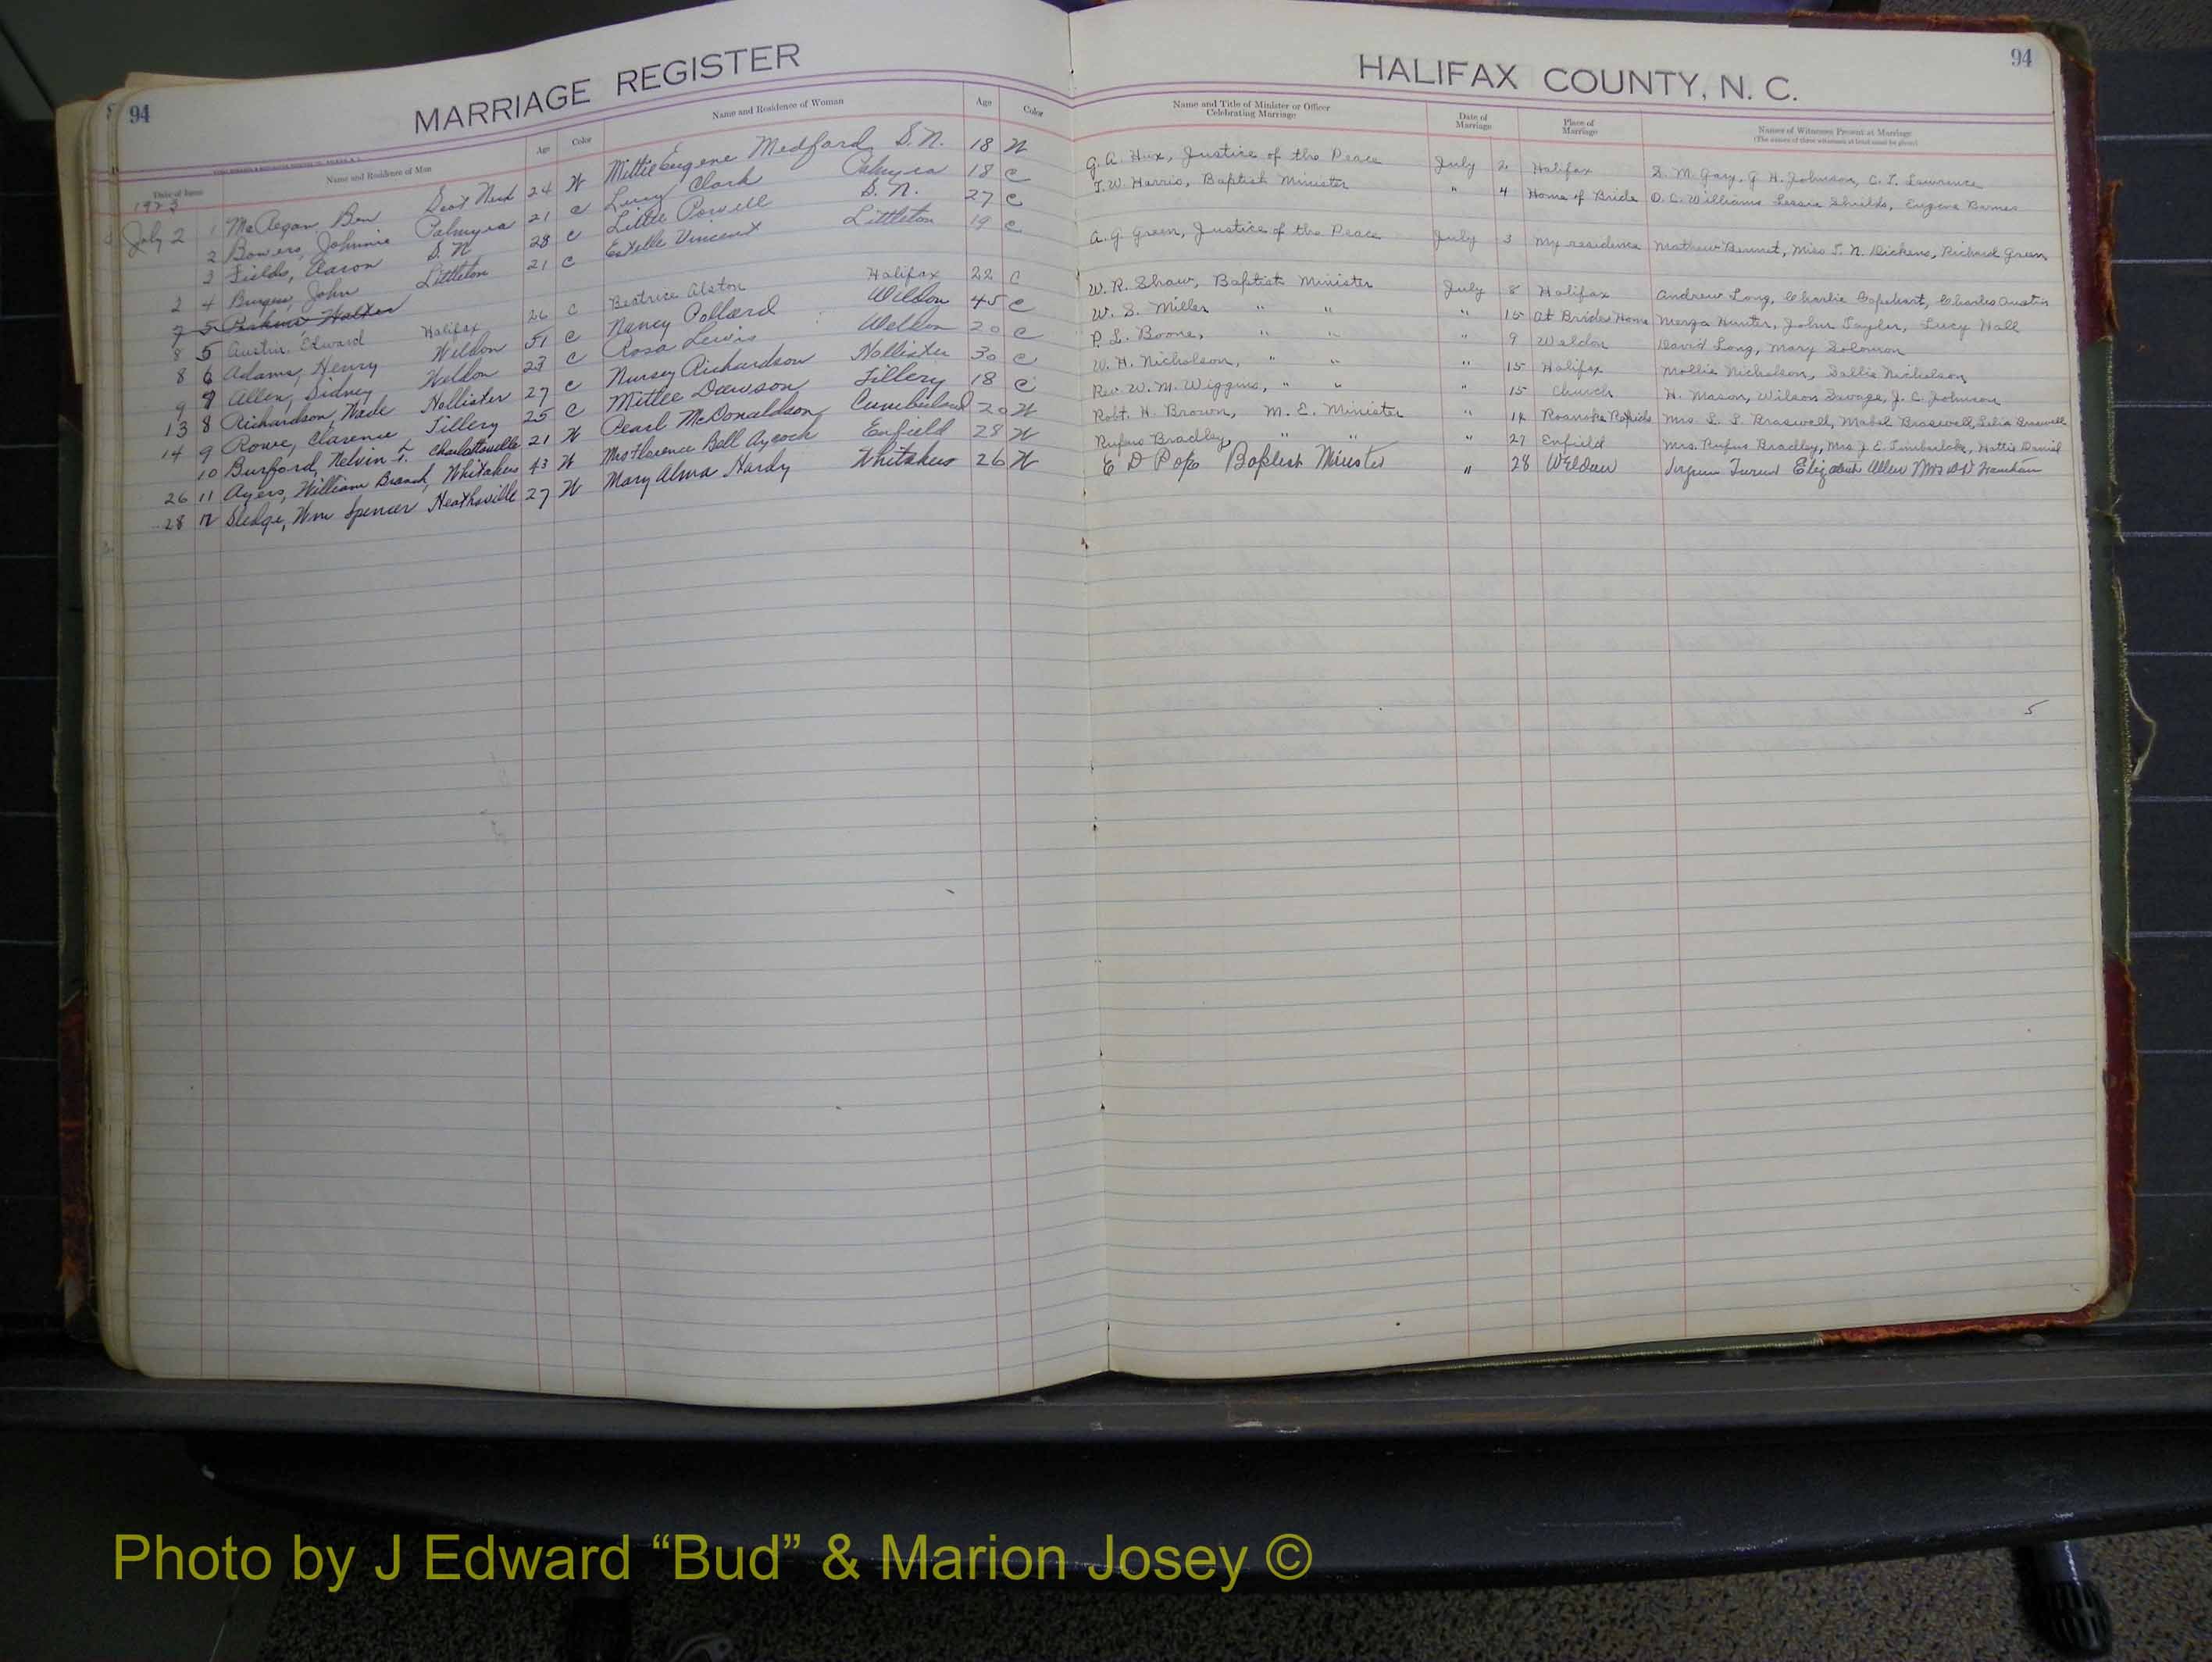 94
MARRIAGE REGISTER
Date of Issue
Name and Residence of Man
Age
Color
Name and Residence of Woman
Age
Color
1923
July 2 1 McRegan, Ben 24 W Mittie Eugene Medford, S. N. 18 W
2 Bowers, Johnnie Palmyra 21 C Lucy Clark Palmyra 18 C
3 Fields, Aaron S. N. 28 C Little Powell S. N. 27 C
2 4 Burgess, John Littleton 21 C Estelle Vincent Littleton 19 C
7 5 Walter
8 5 Austin, Edward Halifax 26 C Beatrice Alston Halifax 22 C
8 6 Adams, Henry Weldon 51 C Nancy Pollard Weldon 45 C
9 7 Allen, Sidney Weldon 23 C Rosa Lewis Weldon 20 C
13 8 Richardson, Wade Hollister 27 C Nursey Richardson Hollister 30 C
14 9 Rowe, Clarence Tillery 25 C Mittle Dawson Tillery 18 C
10 Burford, Nelvin F. Charlottsville 21 W Pearl McDonaldson, Cumberland 20 W
26 11 Ayers, William Branch, Whitakers 43 W Mrs Florence Bell Aycock Enfield 28 W
28 12 Sledge, Wm Spencer Heathsville 27 W Mary Alma Hardy Whitakers 26 W
94
HALIFAX COUNTY, N. C.
Name and Title of Minister or Officer
Celebrating Marriage
Date of
Marriage
Place of
Marriage
Names of Witnesses Present at Marriage
(The names of three witnesses at least must be given)
G. A. Hux, Justice of the Peace July 2 Halifax S. M. Gary, G. H. Johnson, C. T. Lawrence
T. W. Harris, Baptist Minister " 4 Home of Bride O. C. Williams Lessie Shields, Eugene Barnes
A. G. Green, Justice of the Peace July 3 my residence Mathew Bennet, Miss T. N. Dickens, Richard Green
W. R. Shaw, Baptist Minister July 8 Halifax Andrew Long, Charlie Capehart, Charles Austin
W. S. Miller " " " 15 at Brides Home Merga Hunter, John Taylor, Lucy Hall
P. L. Boone, " " " 9 Weldon David Long, Mary Solomon
W. H. Nicholson, " " " 15 Halifax Mollie Nicholson, Sallie Nicholson
Rev. W. M. Wiggins, " " " 15 Church H. Mason, Wilson Savage, J. C. Johnson
Robt. H. Brown, M. E. Minister " 14 Roanoke Rapids Mrs. L. L. Braswell, Mabel Braswell, Lelia Braswell
Rufus Bradley, " " " 27 Enfield Mrs. Rufus Bradley, Mrs J. E. Timberlake, Hattie Daniel
E D Pope Baptist Minister " 28 Weldon Elizabeth Allen Mrs
5
Photo by J Edward “Bud” & Marion Josey ©